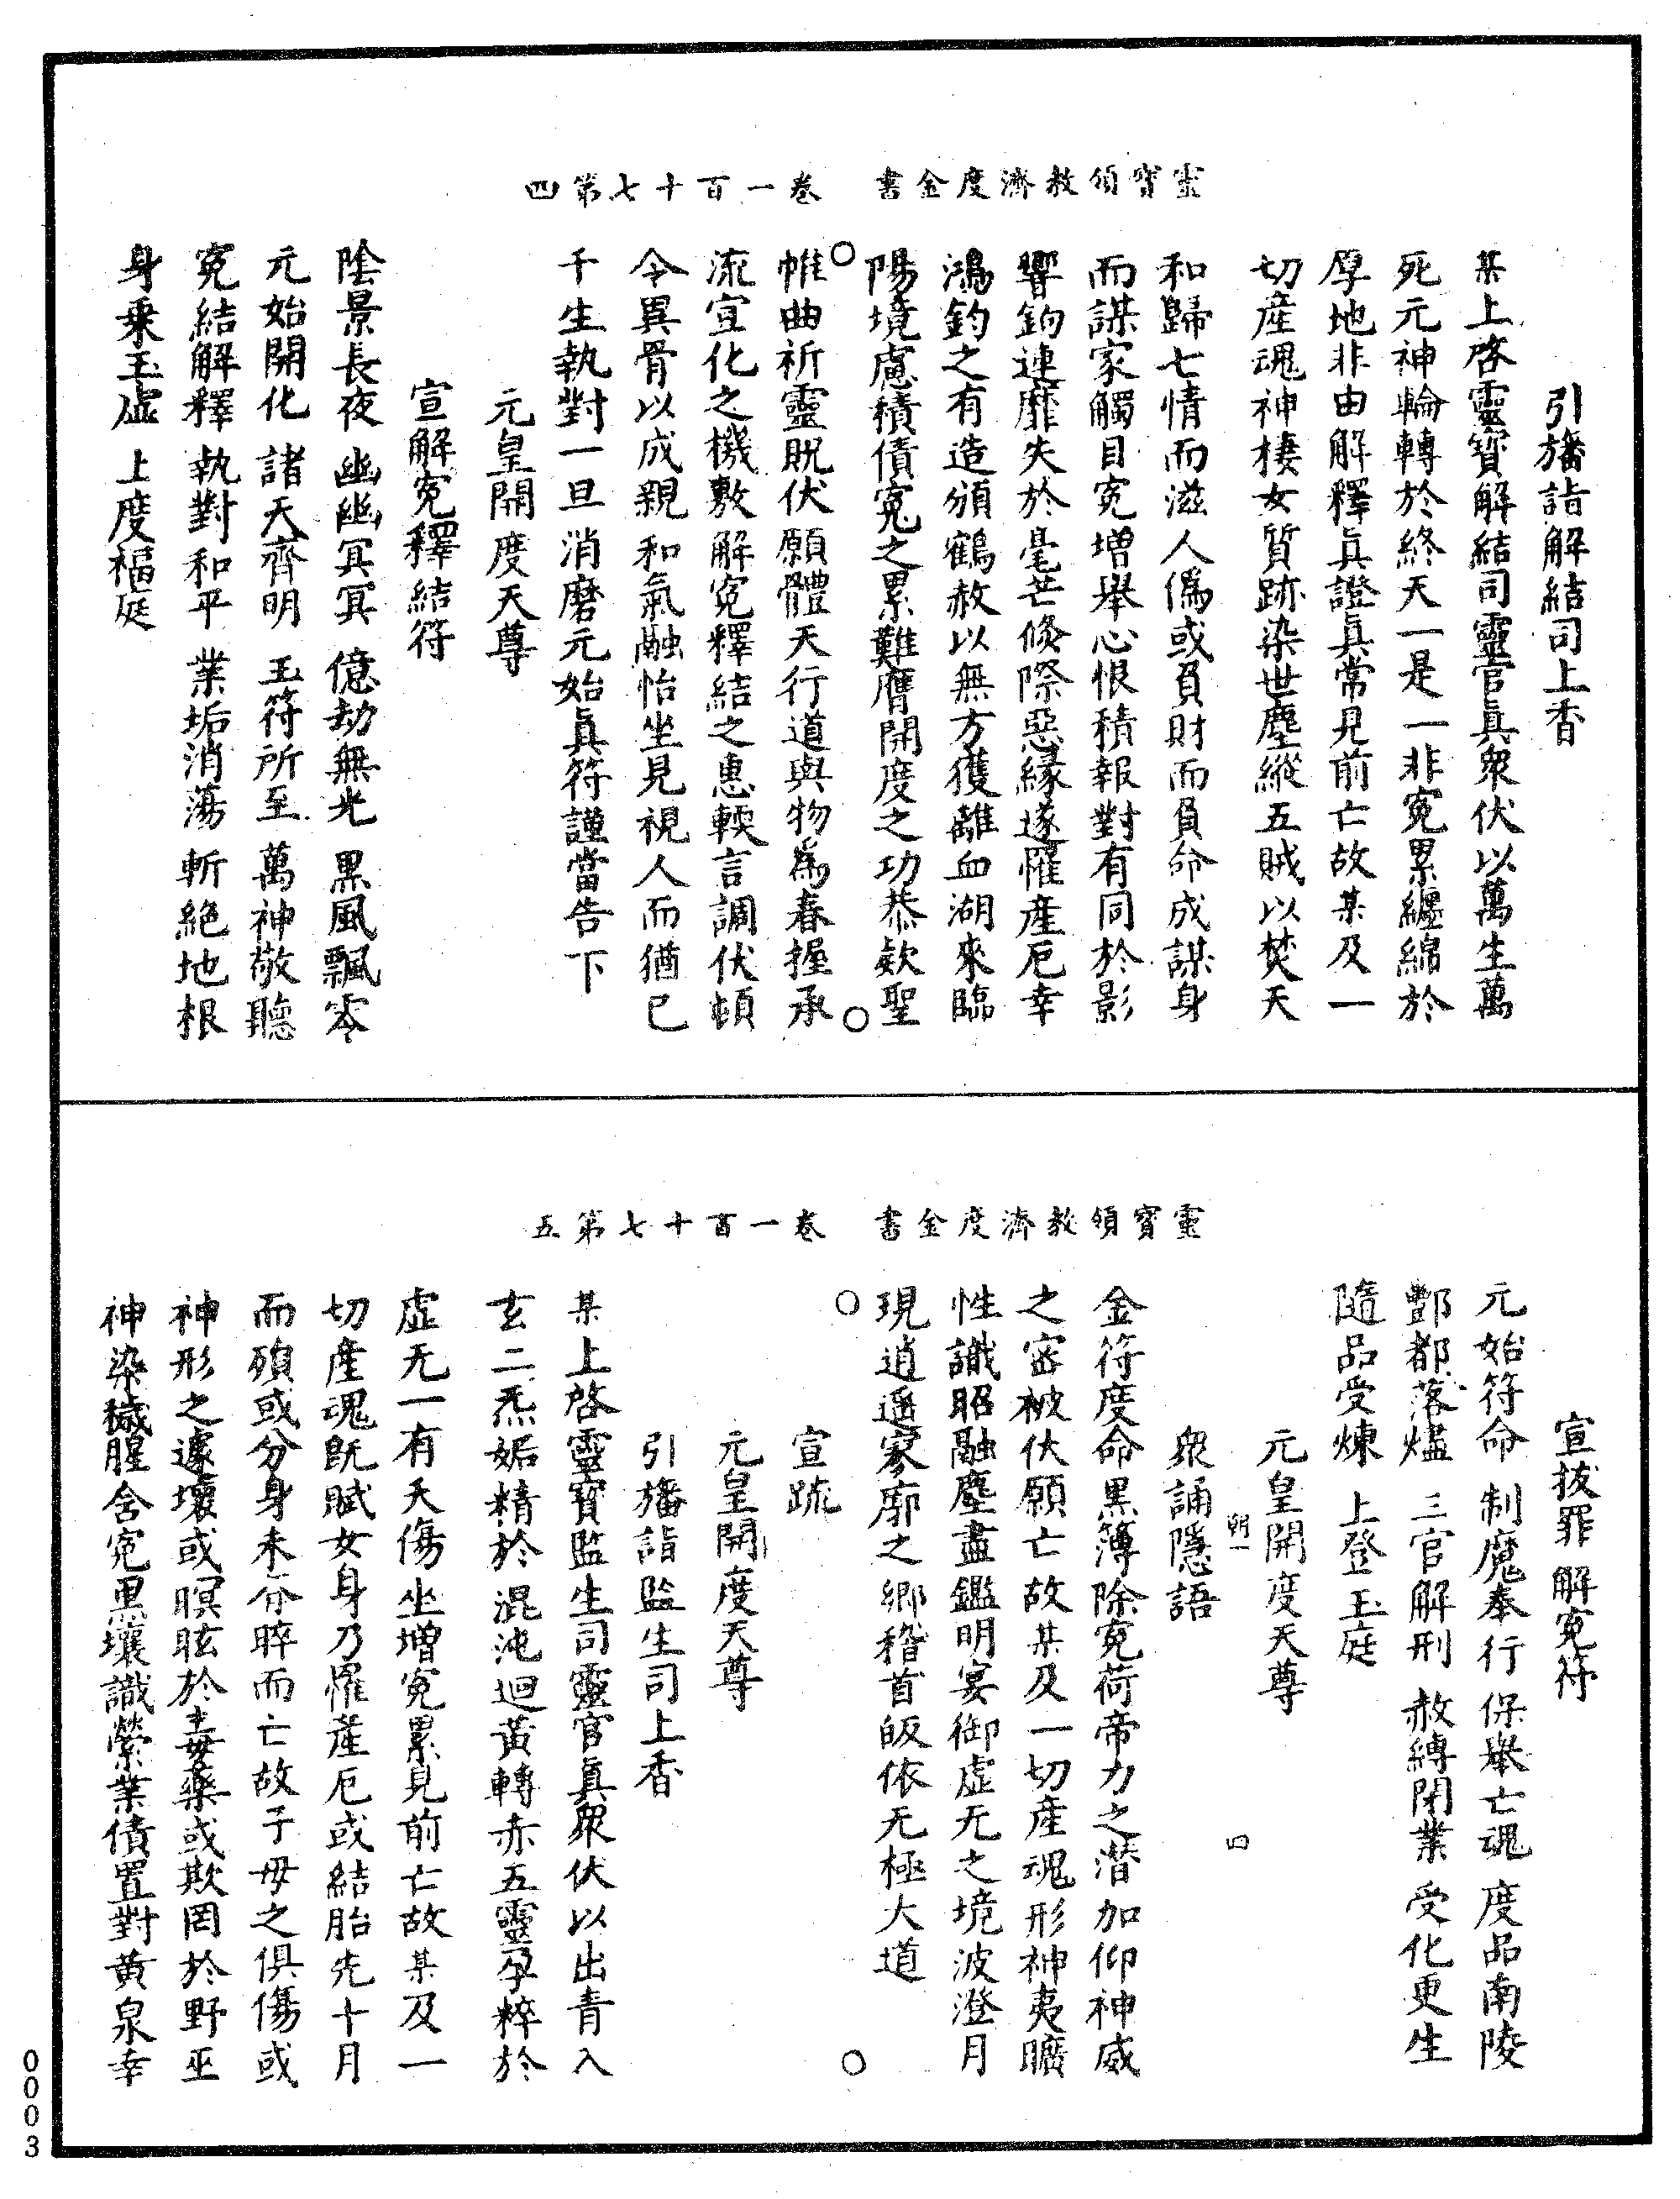 靈寶領教濟度金書　卷一百十七第四
引旛詣解結司上香
某上啓靈寶解結司靈官眞衆伏以萬生萬
死元神輪轉於終天一是一非寃累纏綿於
厚地非由解釋眞證眞常見前亡故某及一
切產魂神棲女質跡染世塵縱五賊以焚天
和歸七情而滋人僞或負財而負命成謀身
而謀家觸目寃增舉心恨積報對有同於影
響鉤連靡失於毫芒倐際惡緣遂罹產厄幸
鴻鈞之有造頒鶴赦以無方獲離血湖來臨
陽境慮積債寃之累難膺開度之功恭欵聖
帷曲祈靈貺伏願體天行道與物爲春握承
流宣化之機敷解寃釋結之惠輭言調伏頓
令異骨以成親和氣融怡坐見視人而猶已
千生執對一旦消磨元始眞符謹當告下
元皇開度天尊
宣解寃釋結符
陰景長夜 幽幽冥冥 億劫無光 黑風飄零
元始開化 諸天齊明 玉符所至 萬神敬聽
寃結解釋 執對和平 業垢消蕩 斬絕地根
身乗玉虛 上度福庭
靈寶領教濟度金書　卷一百十七第五
宣拔罪解寃符
元始符命 制魔奉行 保舉亡魂 度品南陵
酆都落燼 三官解刑 赦縛閉業 受化更生
隨品受煉 上登玉庭
元皇開度天尊
朝一　四
衆誦隱語
金符度命黑簿除寃荷帝力之潛加仰神威
之密被伏願亡故某及一切產魂形神夷曠
性識昭融塵盡鑑明宴御虛无之境波澄月
現逍遥寥廓之鄉稽首皈依无極大道
宣䟽
元皇開度天尊
引旛詣監生司上香
某上啓靈寶監生司靈官眞衆伏以出青入
玄二炁姤精於混沌迴黃轉赤五靈孕粹於
虛无一有夭傷坐增寃累見前亡故某及一
切產魂旣賦女身乃罹產厄或結胎先十月
而殞或分身未分晬而亡故子母之俱傷或
神形之遽壞或暝眩於毒藥或欺罔於野巫
神染穢腥含寃黑壤識縈業債置對黃泉幸
0003